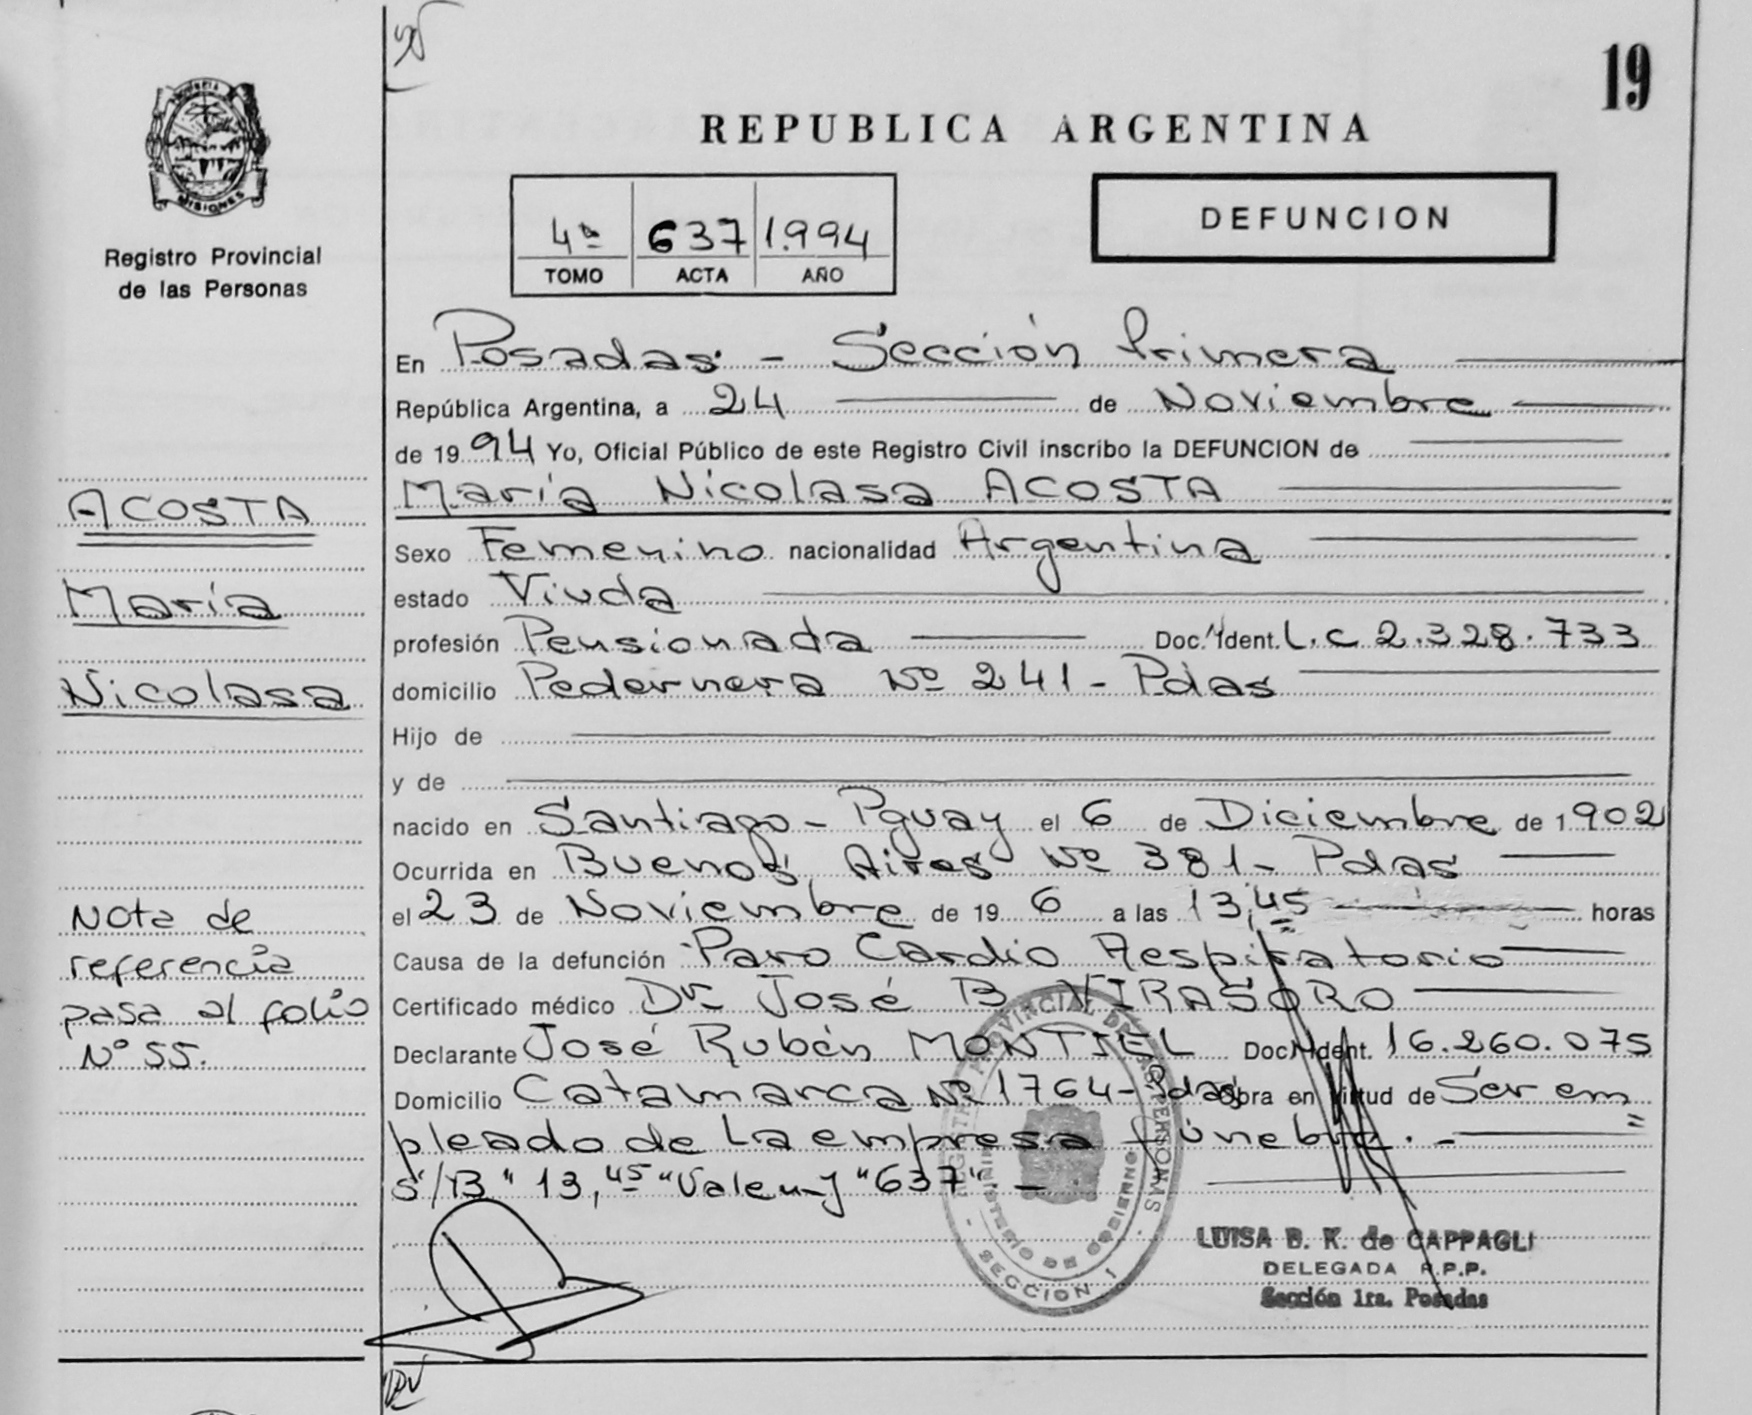 19
REPUBLICA ARGENTINA
MISIONES
Registro Provincial
de las Personas
4º 637 1.994
TOMO ACTA AÑO
DEFUNCION
En Posadas - Sección Primera
República Argentina, a 24 de Noviembre
de 1994 Yo, Oficial Público de este Registro Civil inscribo la DEFUNCION de
María Nicolasa ACOSTA
Sexo Femenino nacionalidad Argentina
estado Viuda
profesión Pensionada Doc. Ident. L.C 2.328.733
domicilio Pedernera Nº 241 - Pdas
Hijo de
y de
nacido en Santiago - Pguay el 6 de Diciembre de 1902
Ocurrida en Buenos Aires Nº 381 - Pdas
el 23 de Noviembre de 19 6 a las 13,45 horas
Causa de la defunción Paro Cardio Respiratorio
Certificado médico Dr José B VIRASORO
Declarante José Rubén MONTIEL Doc. Ident. 16.260.075
Domicilio Catamarca Nº 1764 - Pdas Obra en virtud de Ser em
pleado de la empresa fúnebre. -
S/B " 13,45 "Valen y "637" -
ACOSTA
María
Nicolasa
Nota de
referencia
pasa al folio
Nº 55.
REGISTRO PROVINCIAL DE LAS PERSONAS
MINISTERIO DE GOBIERNO
- SECCION 1 -
LUISA B. K. de CAPPAGLI
DELEGADA R.P.P.
Sección 1ra. Posadas